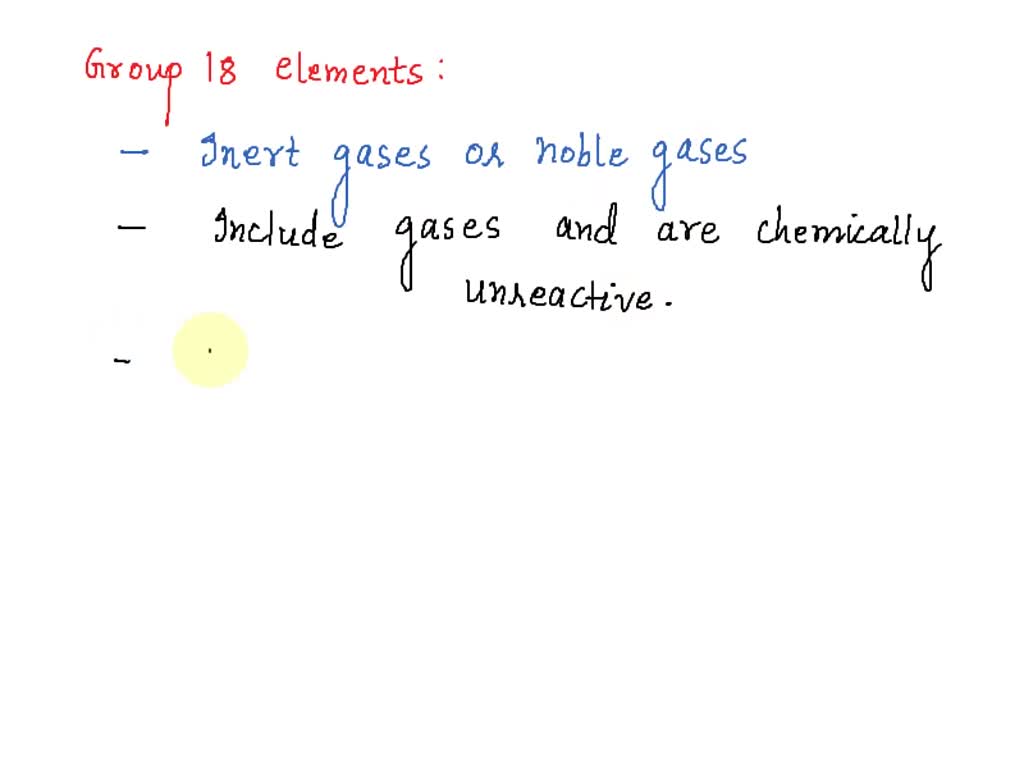 Group 18 elements:
- Inert gases or noble gases
- Include gases and are chemically
unreactive.
-